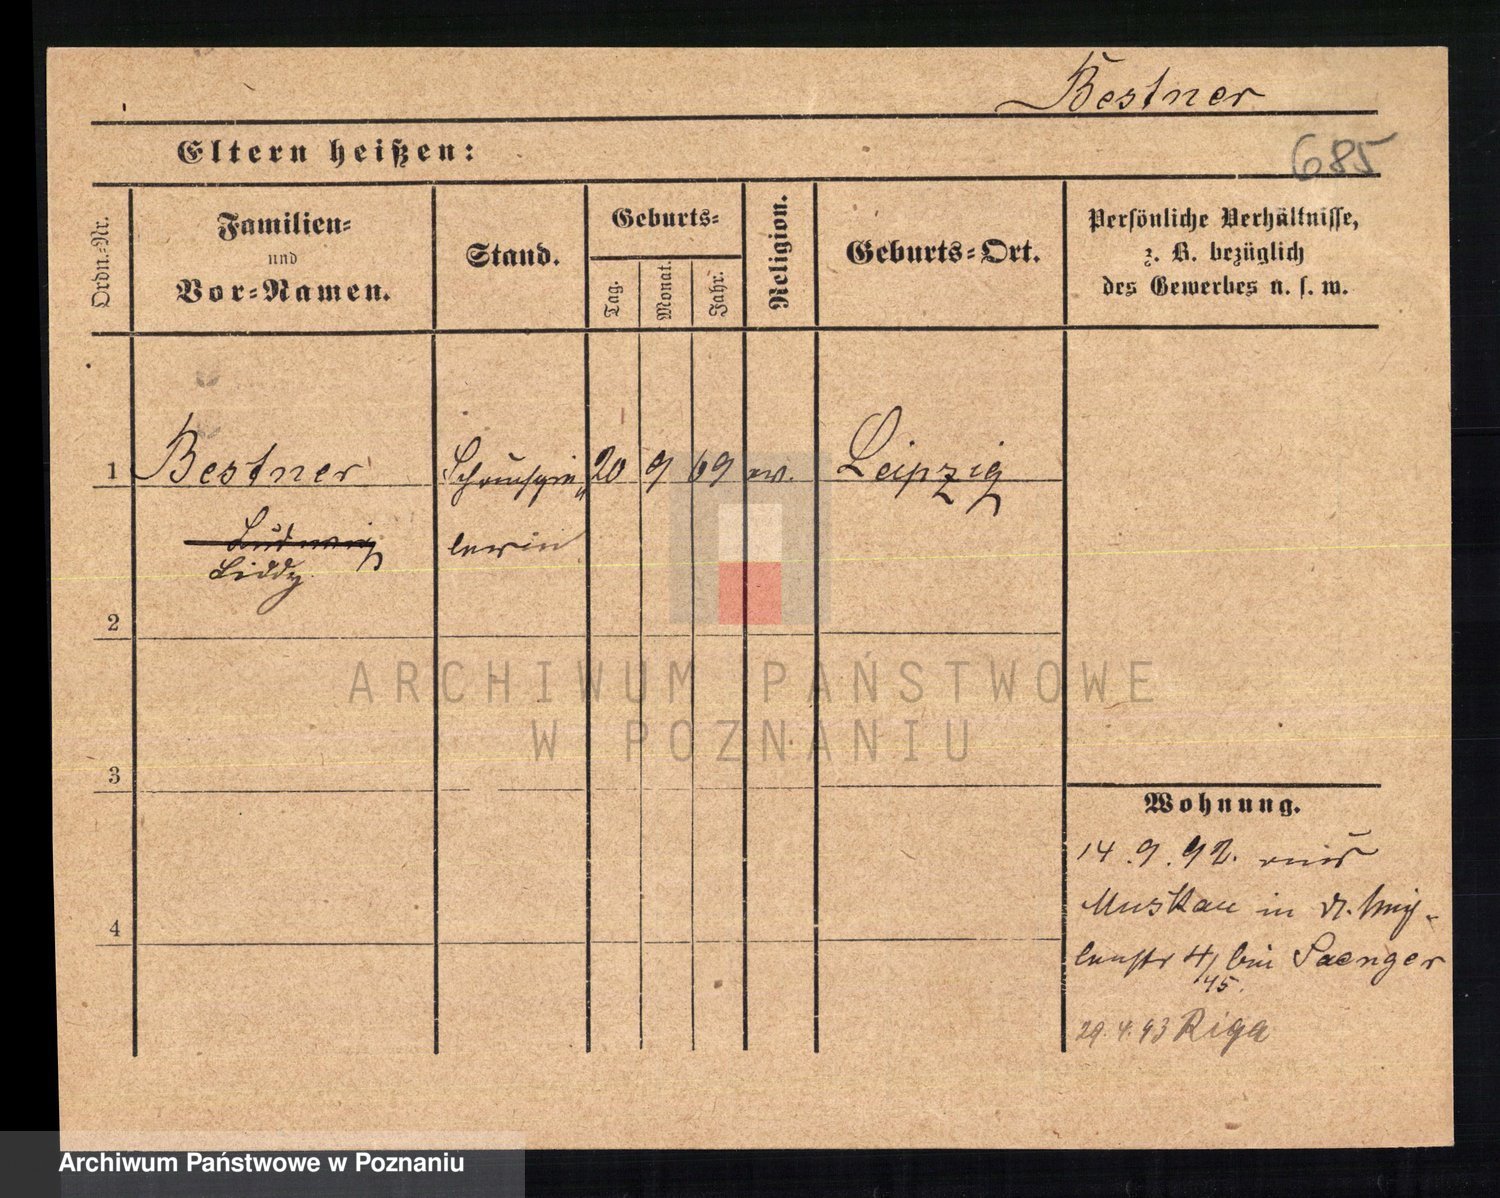 Bestner
Eltern heißen:
685
Ordn.-Nr.
Familien-
und
Vor-Namen.
Stand.
Geburts-
Tag.
Monat.
Jahr.
Religion.
Geburts-Ort.
Persönliche Verhältnisse,
z. B. bezüglich
des Gewerbes u. s. w.
1 Bestner Schauspie 20 9 69 ev. Leipzig
Ludwig lerin
Liddy
2
3
4
Wohnung.
14.9.92. aus
Muskau in
4/45. bei Saenger
29.4.93 Riga
ARCHIWUM PAŃSTWOWE
W POZNANIU
Archiwum Państwowe w Poznaniu